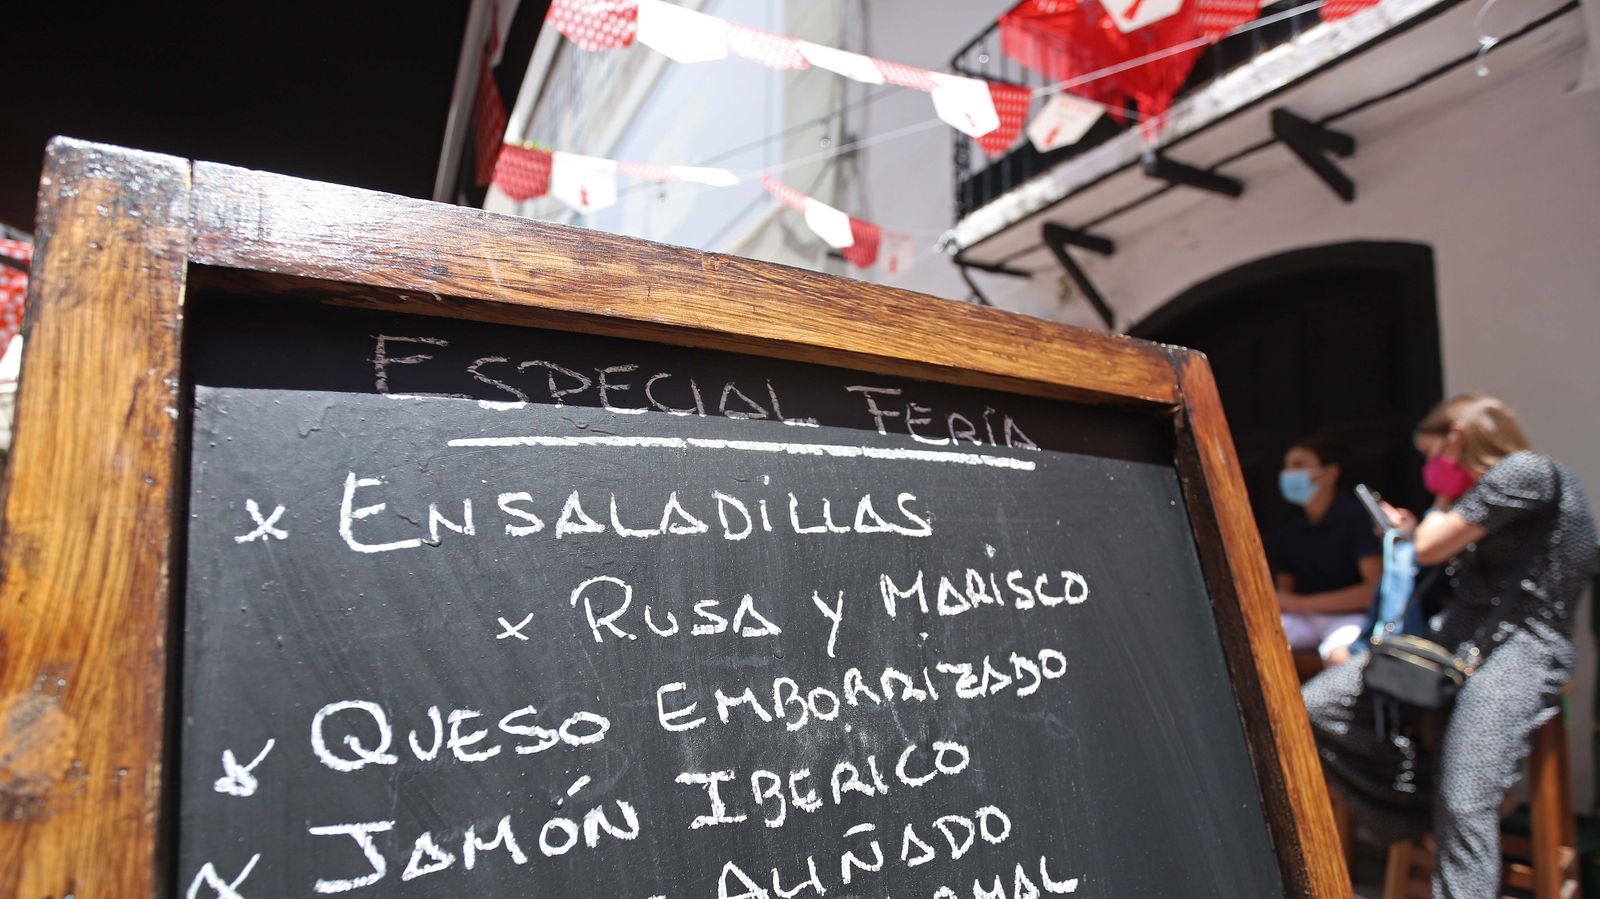 ESPECIAL FERÍA
x ENSALADILLAS
x RUSA Y MARISCO
x QUESO EMBORRIZADO
x JAMÓN IBERICO
ALIÑADO